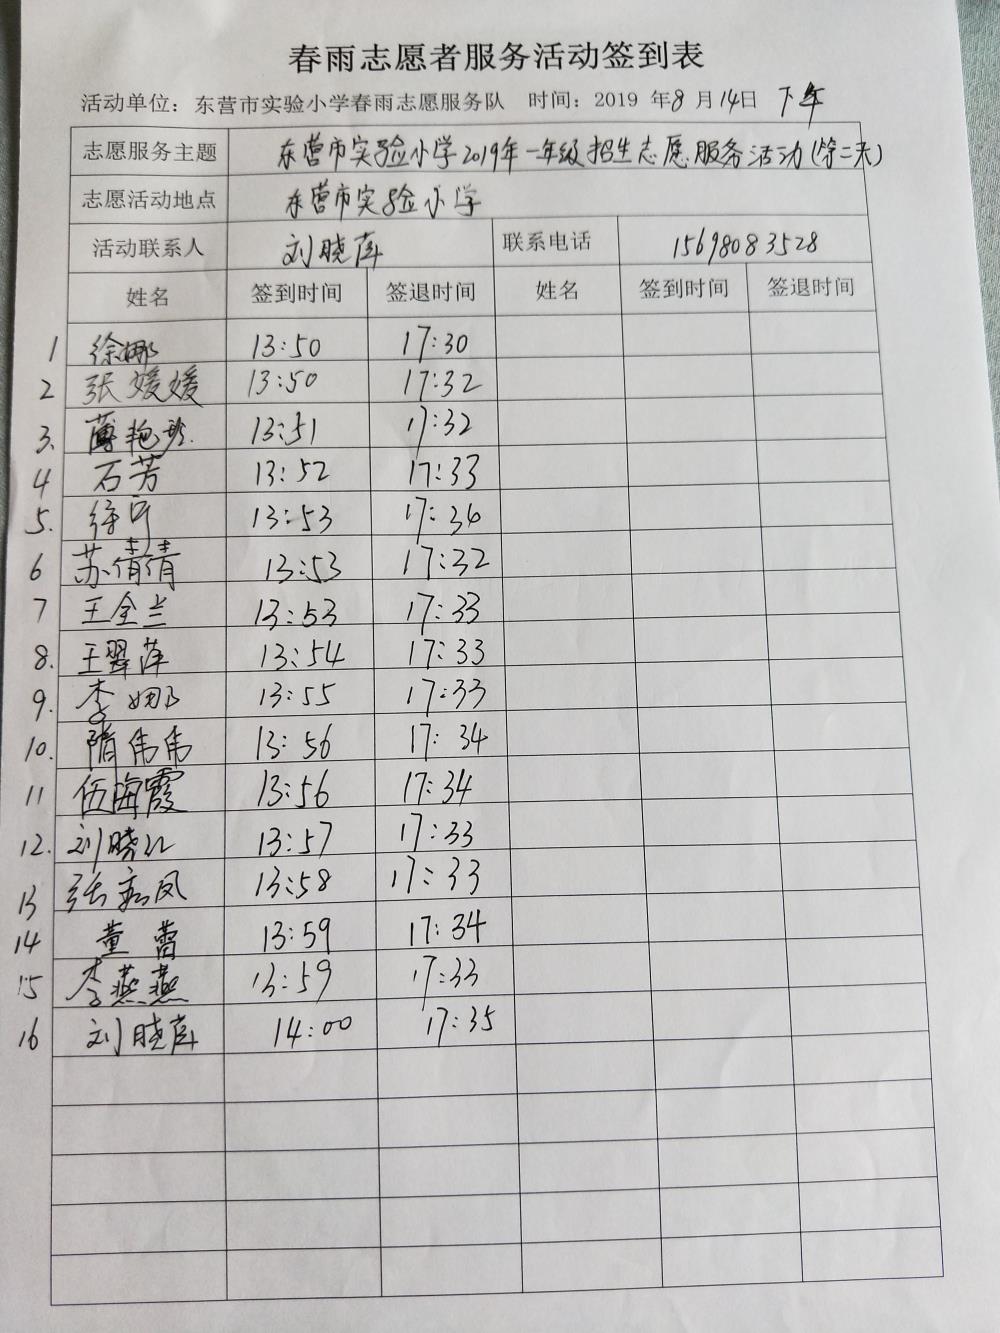 春雨志愿者服务活动签到表
活动单位：东营市实验小学春雨志愿服务队 时间：2019 年8月14日 下午
志愿服务主题 东营市实验小学2019年一年级招生志愿服务活动(第二天)
志愿活动地点 东营市实验小学
活动联系人 刘晓 联系电话 15698083528
姓名 签到时间 签退时间 姓名 签到时间 签退时间
1 徐娜 13:50 17:30
2 张媛媛 13:50 17:32
3. 薄艳 13:51 17:32
4 石芳 13:52 17:33
5. 徐 13:53 17:36
6 苏倩倩 13:53 17:32
7 王全兰 13:53 17:33
8. 王翠萍 13:54 17:33
9. 李娜 13:55 17:33
10. 隋伟伟 13:56 17:34
11 伍海霞 13:56 17:34
12. 刘晓红 13:57 17:33
13 张凤 13:58 17:33
14 董蕾 13:59 17:34
15 李燕燕 13:59 17:33
16 刘晓 14:00 17:35